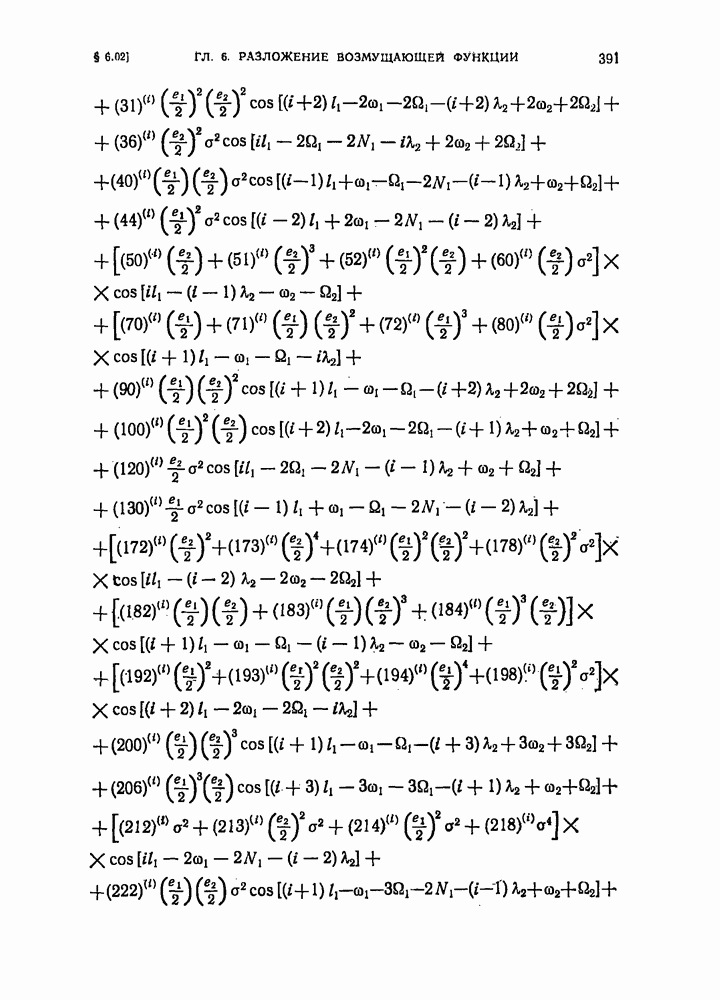 § 6.02] ГЛ. 6. РАЗЛОЖЕНИЕ ВОЗМУЩАЮЩЕЙ ФУНКЦИИ 391
+ (31)⁽ⁱ⁾ (e₁/2)² (e₂/2)² cos [(i+2) l₁—2ω₁—2Ω₁—(i+2) λ₂+2ω₂+2Ω₂] +
+ (36)⁽ⁱ⁾ (e₂/2)² σ² cos [il₁ — 2Ω₁ — 2N₁ — iλ₂ + 2ω₂ + 2Ω₂] +
+(40)⁽ⁱ⁾ (e₁/2) (e₂/2) σ² cos [(i—1) l₁+ω₁—Ω₁—2N₁—(i—1) λ₂+ω₂+Ω₂]+
+ (44)⁽ⁱ⁾ (e₁/2)² σ² cos [(i — 2) l₁ + 2ω₁ — 2N₁ — (i — 2) λ₂] +
+ [(50)⁽ⁱ⁾ (e₂/2) + (51)⁽ⁱ⁾ (e₂/2)³ + (52)⁽ⁱ⁾ (e₁/2)² (e₂/2) + (60)⁽ⁱ⁾ (e₂/2) σ²] ×
× cos [il₁ — (i — 1) λ₂ — ω₂ — Ω₂] +
+ [(70)⁽ⁱ⁾ (e₁/2) + (71)⁽ⁱ⁾ (e₁/2) (e₂/2)² + (72)⁽ⁱ⁾ (e₁/2)³ + (80)⁽ⁱ⁾ (e₁/2) σ²] ×
× cos [(i + 1) l₁ — ω₁ — Ω₁ — iλ₂] +
+ (90)⁽ⁱ⁾ (e₁/2) (e₂/2)² cos [(i + 1) l₁ — ω₁ — Ω₁ — (i +2) λ₂+2ω₂ + 2Ω₂] +
+ (100)⁽ⁱ⁾ (e₁/2)² (e₂/2) cos [(i + 2) l₁—2ω₁—2Ω₁—(i + 1) λ₂+ω₂+Ω₂]+
+ (120)⁽ⁱ⁾ e₂/2 σ² cos [il₁ — 2Ω₁ — 2N₁ — (i — 1) λ₂ + ω₂ + Ω₂] +
+ (130)⁽ⁱ⁾ e₁/2 σ² cos [(i — 1) l₁ + ω₁ — Ω₁ — 2N₁ — (i — 2) λ₂] +
+[(172)⁽ⁱ⁾ (e₂/2)²+(173)⁽ⁱ⁾ (e₂/2)⁴+(174)⁽ⁱ⁾ (e₁/2)² (e₂/2)²+(178)⁽ⁱ⁾ (e₂/2)² σ²]×
× cos [il₁ — (i — 2) λ₂ — 2ω₂ — 2Ω₂] +
+ [(182)⁽ⁱ⁾ (e₁/2) (e₂/2) + (183)⁽ⁱ⁾ (e₁/2) (e₂/2)³ + (184)⁽ⁱ⁾ (e₁/2)³ (e₂/2)] ×
× cos [(i + 1) l₁ — ω₁ — Ω₁ — (i — 1) λ₂ — ω₂ — Ω₂] +
+ [(192)⁽ⁱ⁾ (e₁/2)²+(193)⁽ⁱ⁾ (e₁/2)² (e₂/2)²+(194)⁽ⁱ⁾ (e₁/2)⁴+(198)⁽ⁱ⁾ (e₁/2)² σ²]×
× cos [(i + 2) l₁ — 2ω₁ — 2Ω₁ — iλ₂] +
+ (200)⁽ⁱ⁾ (e₁/2) (e₂/2)³ cos [(i + 1) l₁—ω₁—Ω₁—(i + 3) λ₂ + 3ω₂ + 3Ω₂] +
+ (206)⁽ⁱ⁾ (e₁/2)³ (e₂/2) cos [(i + 3) l₁ — 3ω₁ — 3Ω₁—(i + 1) λ₂ + ω₂+Ω₂]+
+ [(212)⁽ⁱ⁾ σ² + (213)⁽ⁱ⁾ (e₂/2)² σ² + (214)⁽ⁱ⁾ (e₁/2)² σ² + (218)⁽ⁱ⁾ σ⁴] ×
× cos [il₁ — 2ω₁ — 2N₁ — (i — 2) λ₂] +
+(222)⁽ⁱ⁾ (e₁/2) (e₂/2) σ² cos [(i+1) l₁—ω₁—3Ω₁—2N₁—(i—1) λ₂+ω₂+Ω₂]+